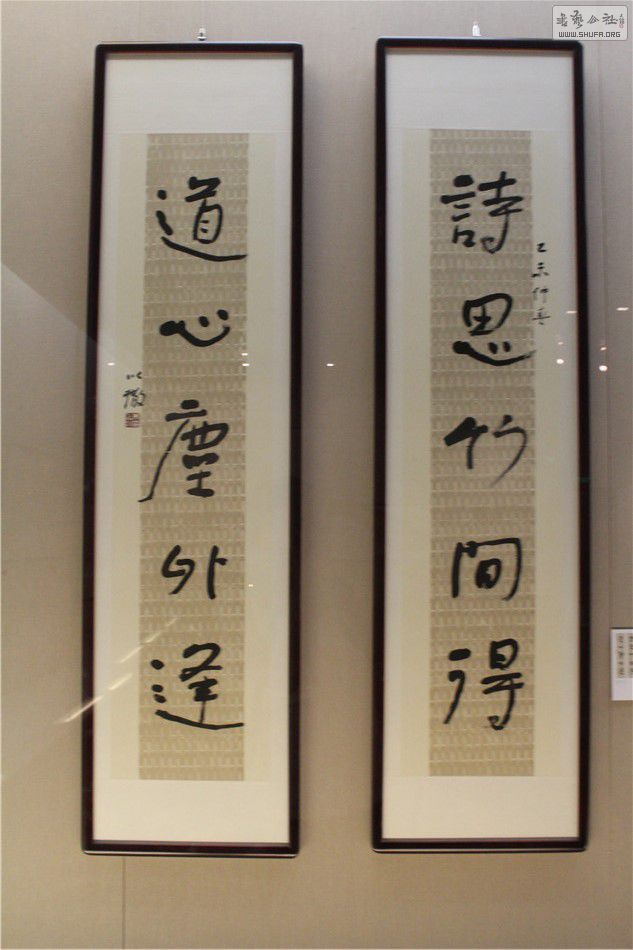 詩思竹間得
乙未仲春
道心塵外逢
以撒
書藝公社
WWW.SHUFA.ORG